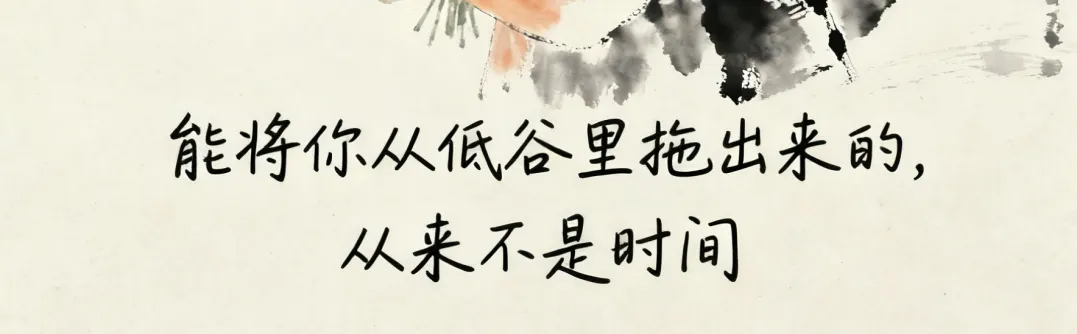 能将你从低谷里拖出来的,
从来不是时间